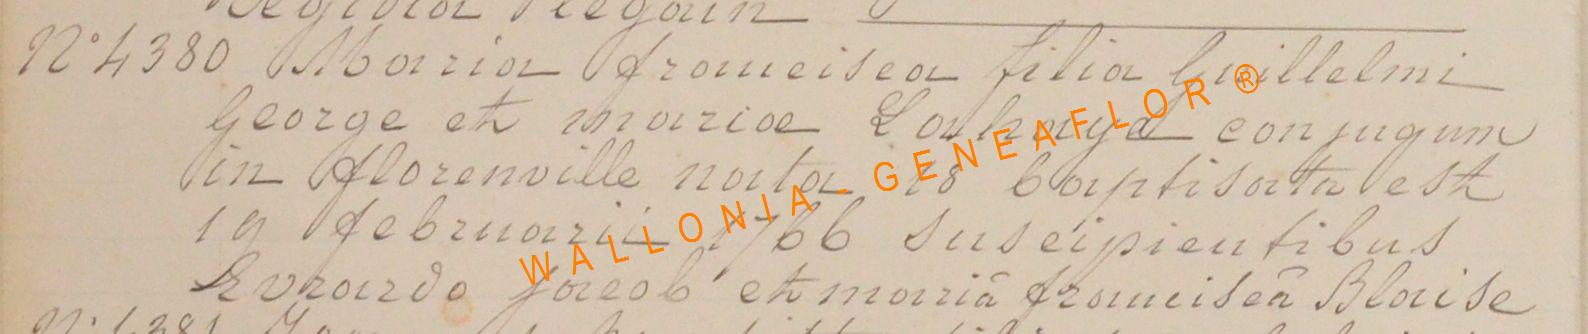 Regidia Pregain
N° 4380 Maria francisca filia Guillelmi
George et mariae Lahaye conjugum
in florenville nata 18 baptisata est
19 februarii 1766 suscipientibus
Evrardo jacob et mariâ franciscâ Blaise
N° 4381
WALLONIA - GENEAFLOR ®